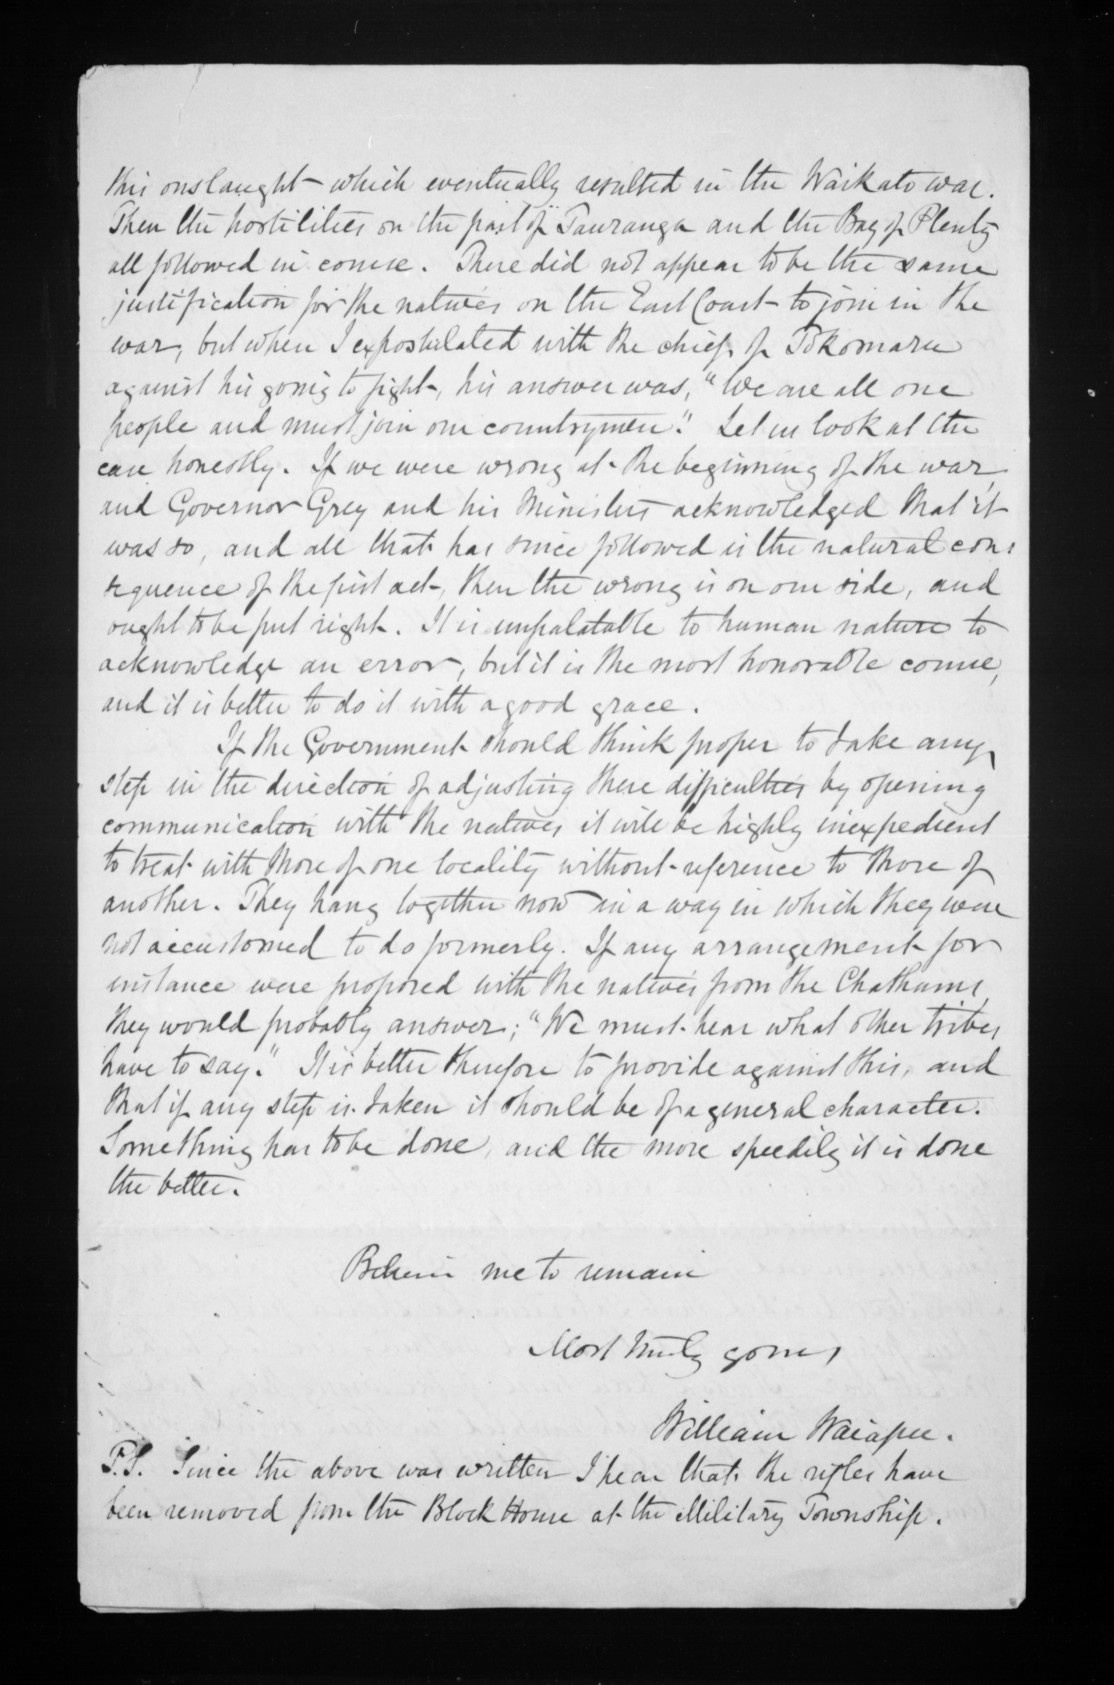 this onslaught which eventually resulted in the Waikato war.
Then the hostilities on the part of Tauranga and the Bay of Plenty
all followed in course. There did not appear to be the same
justification for the natives on the East Coast to join in the
war, but when I expostulated with the chief of Tokomaru
against his going to fight, his answer was, "We are all one
people and must join our countrymen." Let us look at the
case honestly. If we were wrong at the beginning of the war,
and Governor Grey and his Ministers acknowledged that it
was so, and all that has since followed is the natural con
sequence of the first act, then the wrong is on our side, and
ought to be put right. It is unpalatable to human nature to
acknowledge an error, but it is the most honorable course,
and it is better to do it with a good grace.
If the Government should think proper to take any
step in the direction of adjusting these difficulties by opening
communication with the natives it will be highly inexpedient
to treat with those of one locality without reference to those of
another. They hang together now in a way in which they were
not accustomed to do formerly. If any arrangement for
instance were proposed with the natives from the Chathams,
they would probably answer; "We must hear what other tribes
have to say." It is better therefore to provide against this, and
that if any step is taken it should be of a general character.
Something has to be done, and the more speedily it is done
the better.
Believe me to remain
Most truly yours
William Waiapu.
P.S. Since the above was written I hear that the rifles have
been removed from the Block House at the Military Township.